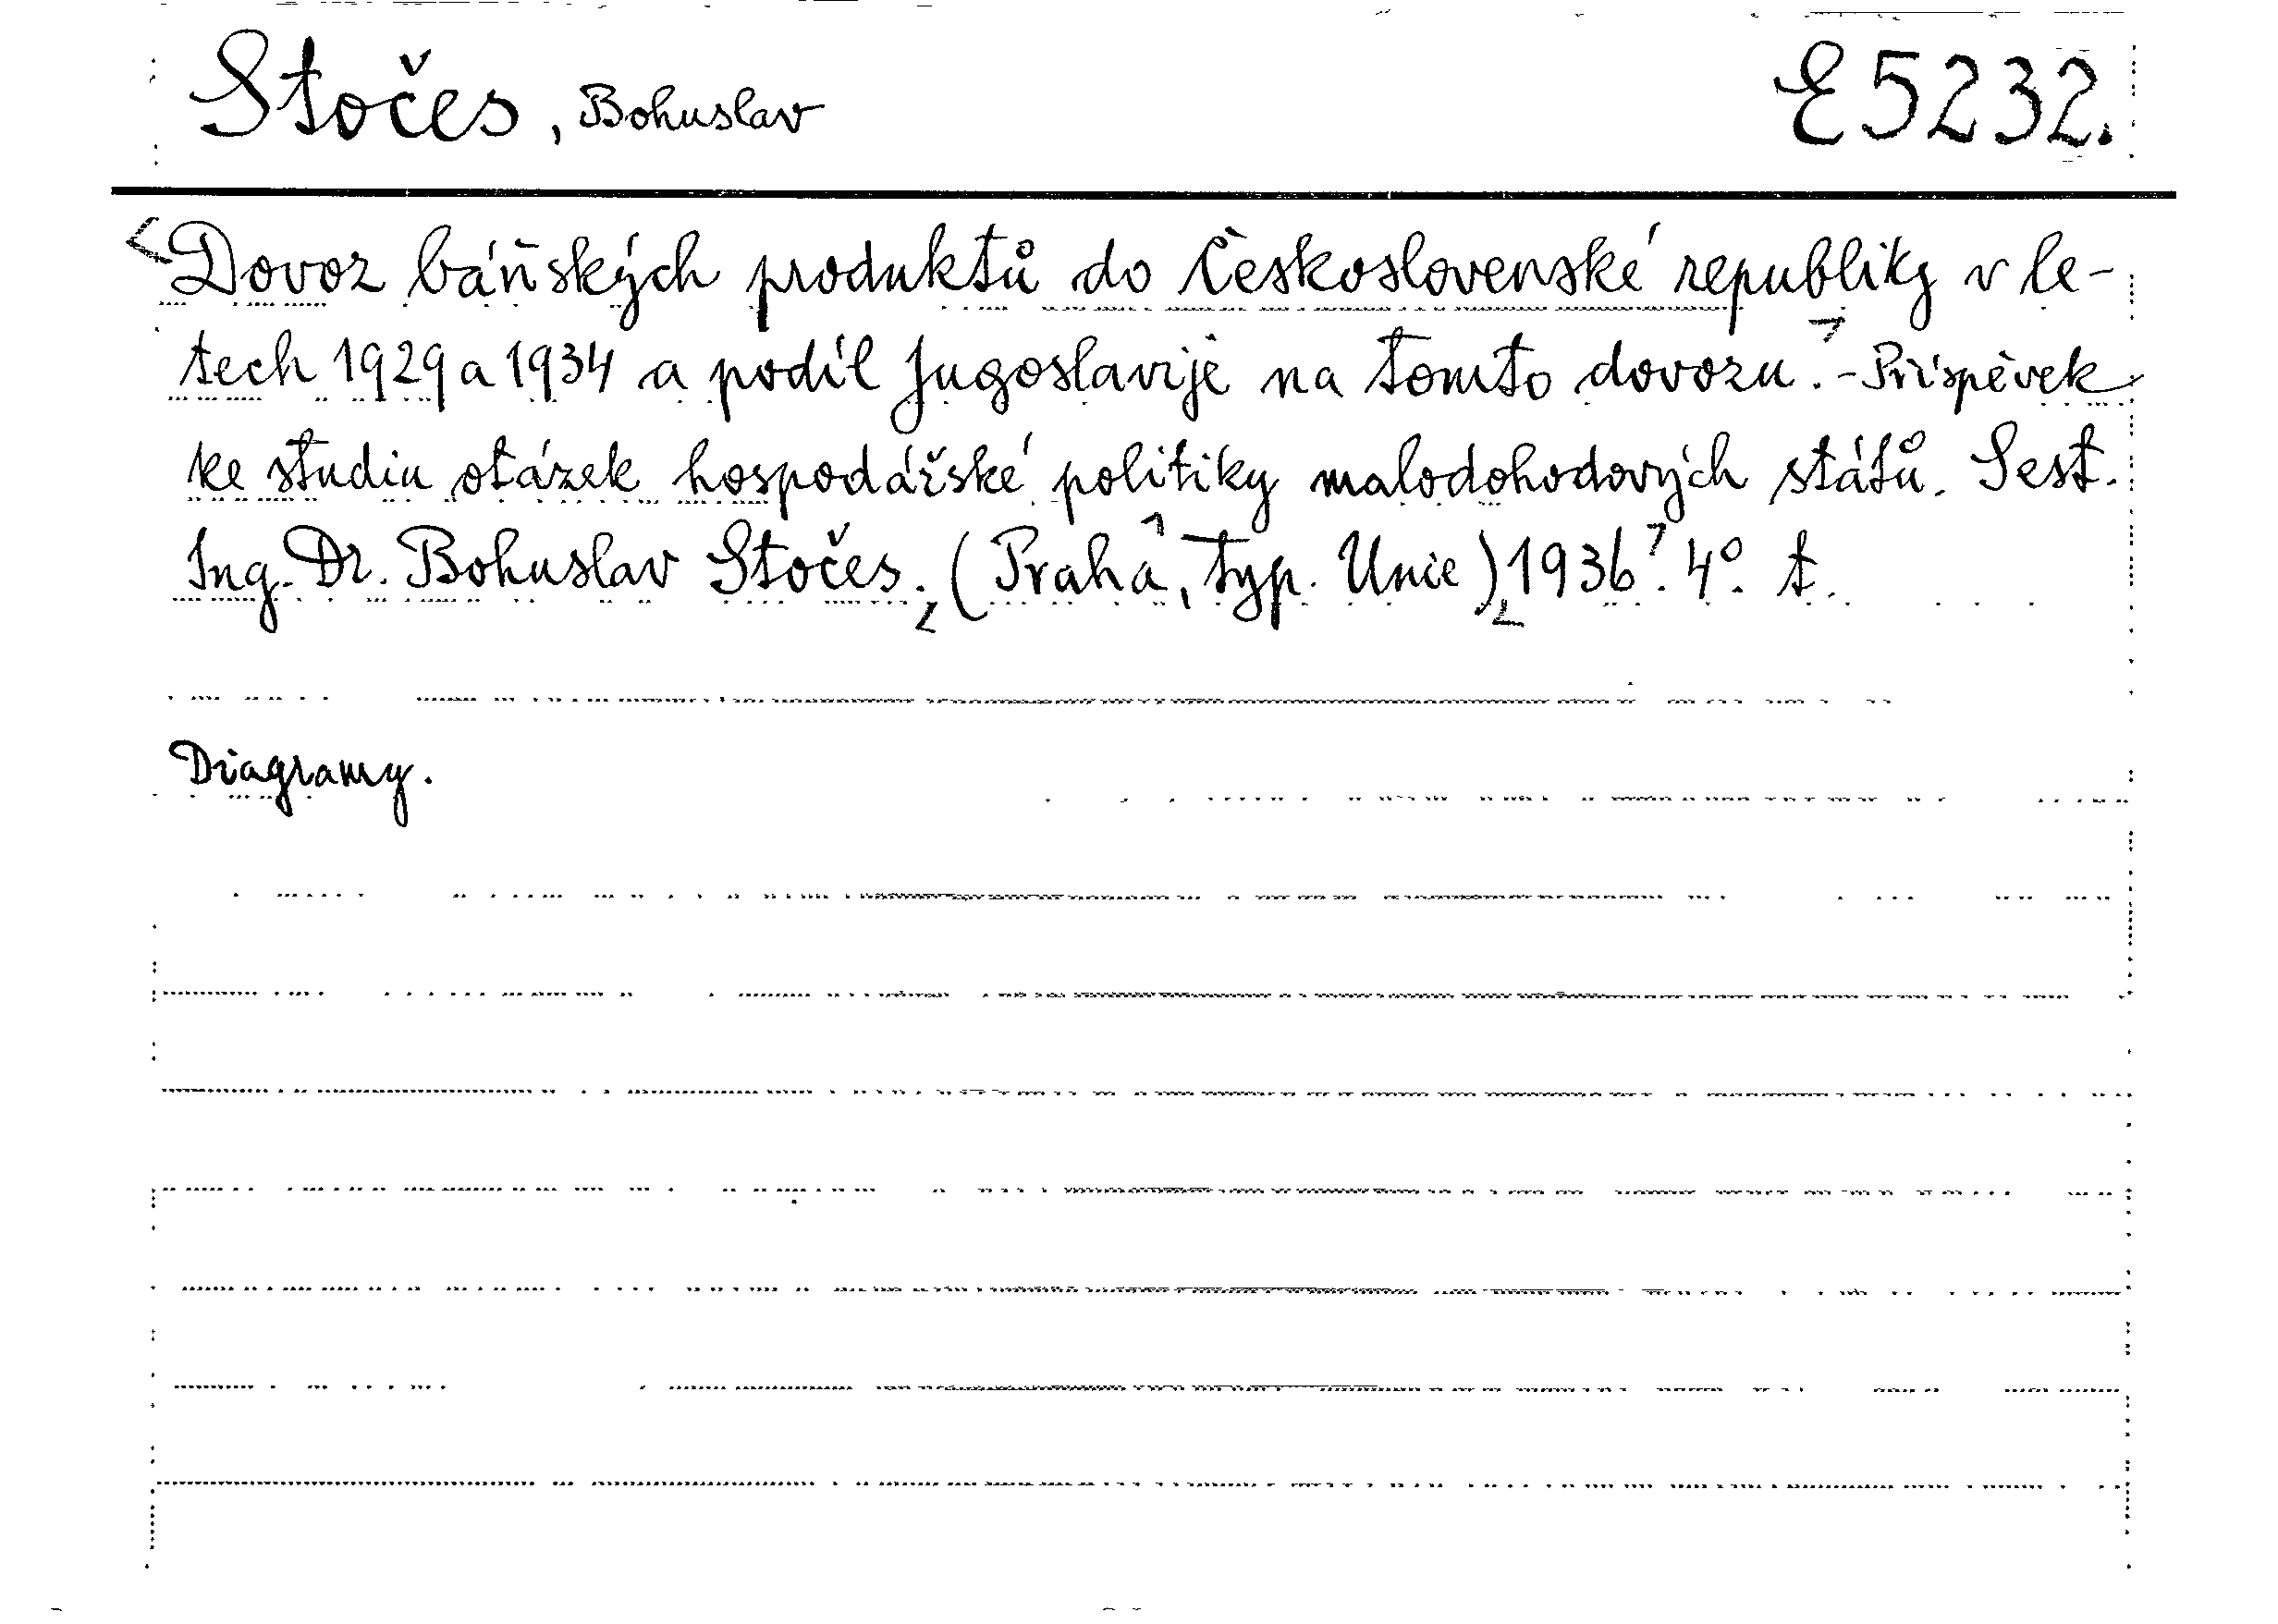 Stočes, Bohuslav E 5232.
Dovoz báňských produktů do Československé republiky v le-
tech 1929 a 1934 a podíl Jugoslavije na tomto dovozu. - Příspěvek
ke studiu otázek hospodářské politiky malodohodových států. Sest.
Ing. Dr. Bohuslav Stočes. (Praha, typ. Unie) 1936. 4°. t.
Diagramy.